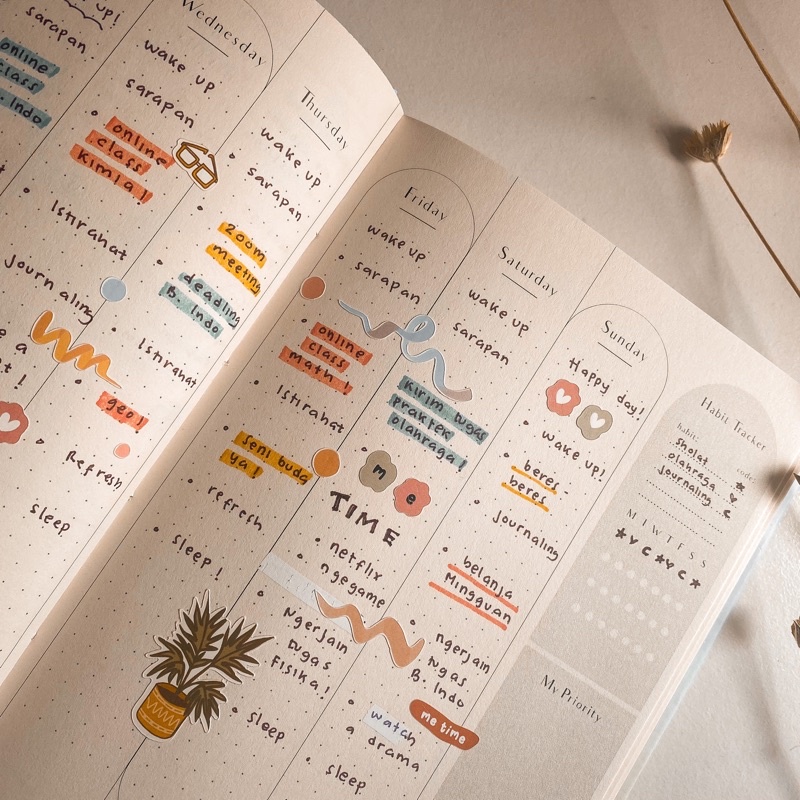 up!
sarapan
online
class
B. Indo
Wednesday
wake up
sarapan
online
class
kimia!
Istirahat
Journaling
Refresh
sleep
Thursday
wake up
sarapan
zoom
meeting
deadline
B. Indo
Istirahat
geo!
Friday
wake up
sarapan
online
class
math!
Istirahat
seni buda
ya!
refresh
sleep!
Saturday
wake up
sarapan
kirim tugas
praktek
olahraga!
me
TIME
netflix
ngegame
Ngerjain
tugas
Fisika!
sleep
Sunday
Happy day!
wake up!
beres-
beres
Journaling
belanja
Mingguan
ngerjain
tugas
B. Indo
me time
watch
a drama
sleep
Habit Tracker
habit:
Sholat
olahraga
Journaling
M T W T F S S
My Priority